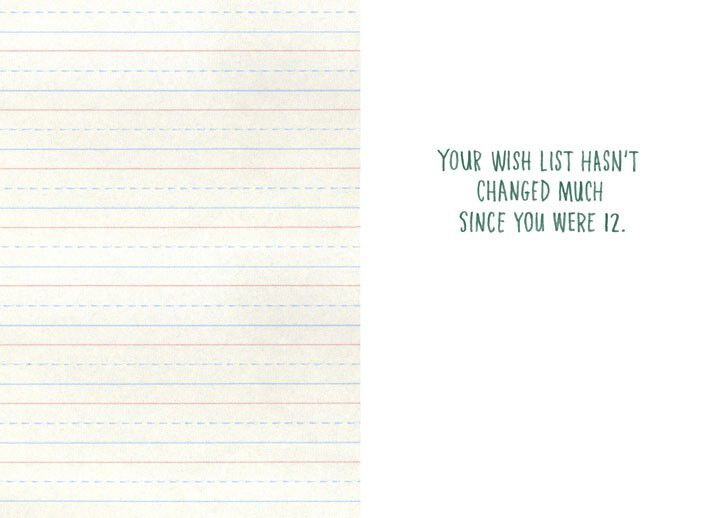 YOUR WISH LIST HASN'T
CHANGED MUCH
SINCE YOU WERE 12.